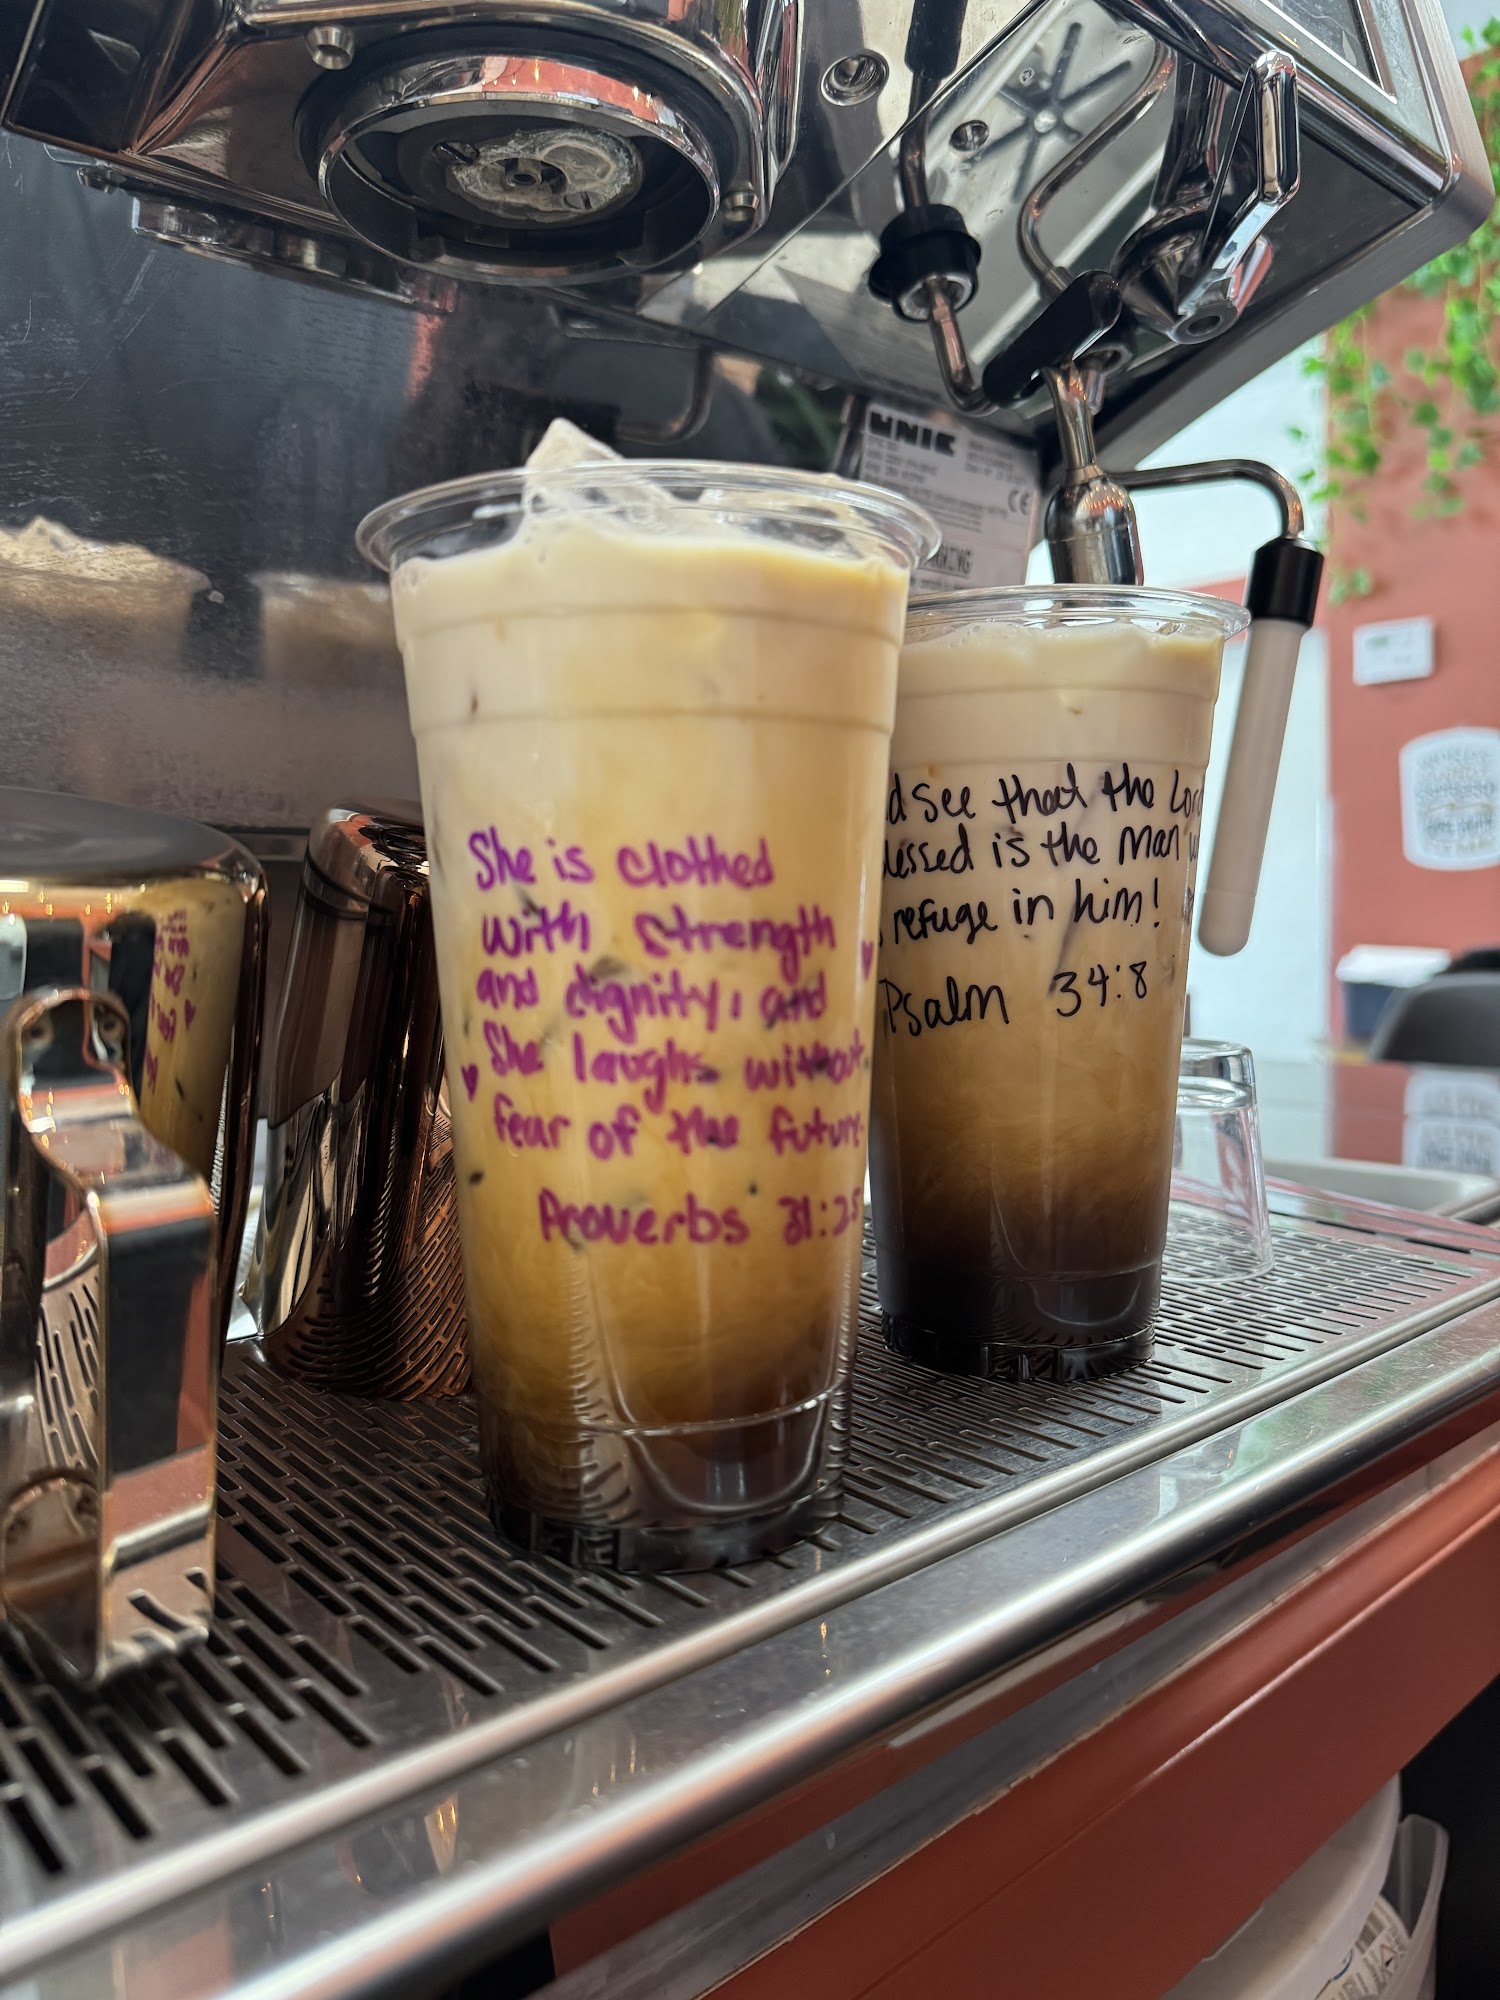 She is clothed
with strength
and dignity, and
She laughs without
fear of the future.
Proverbs 31:25
d see that the Lor
lessed is the man
refuge in him!
Psalm 34:8
UNIC
CE